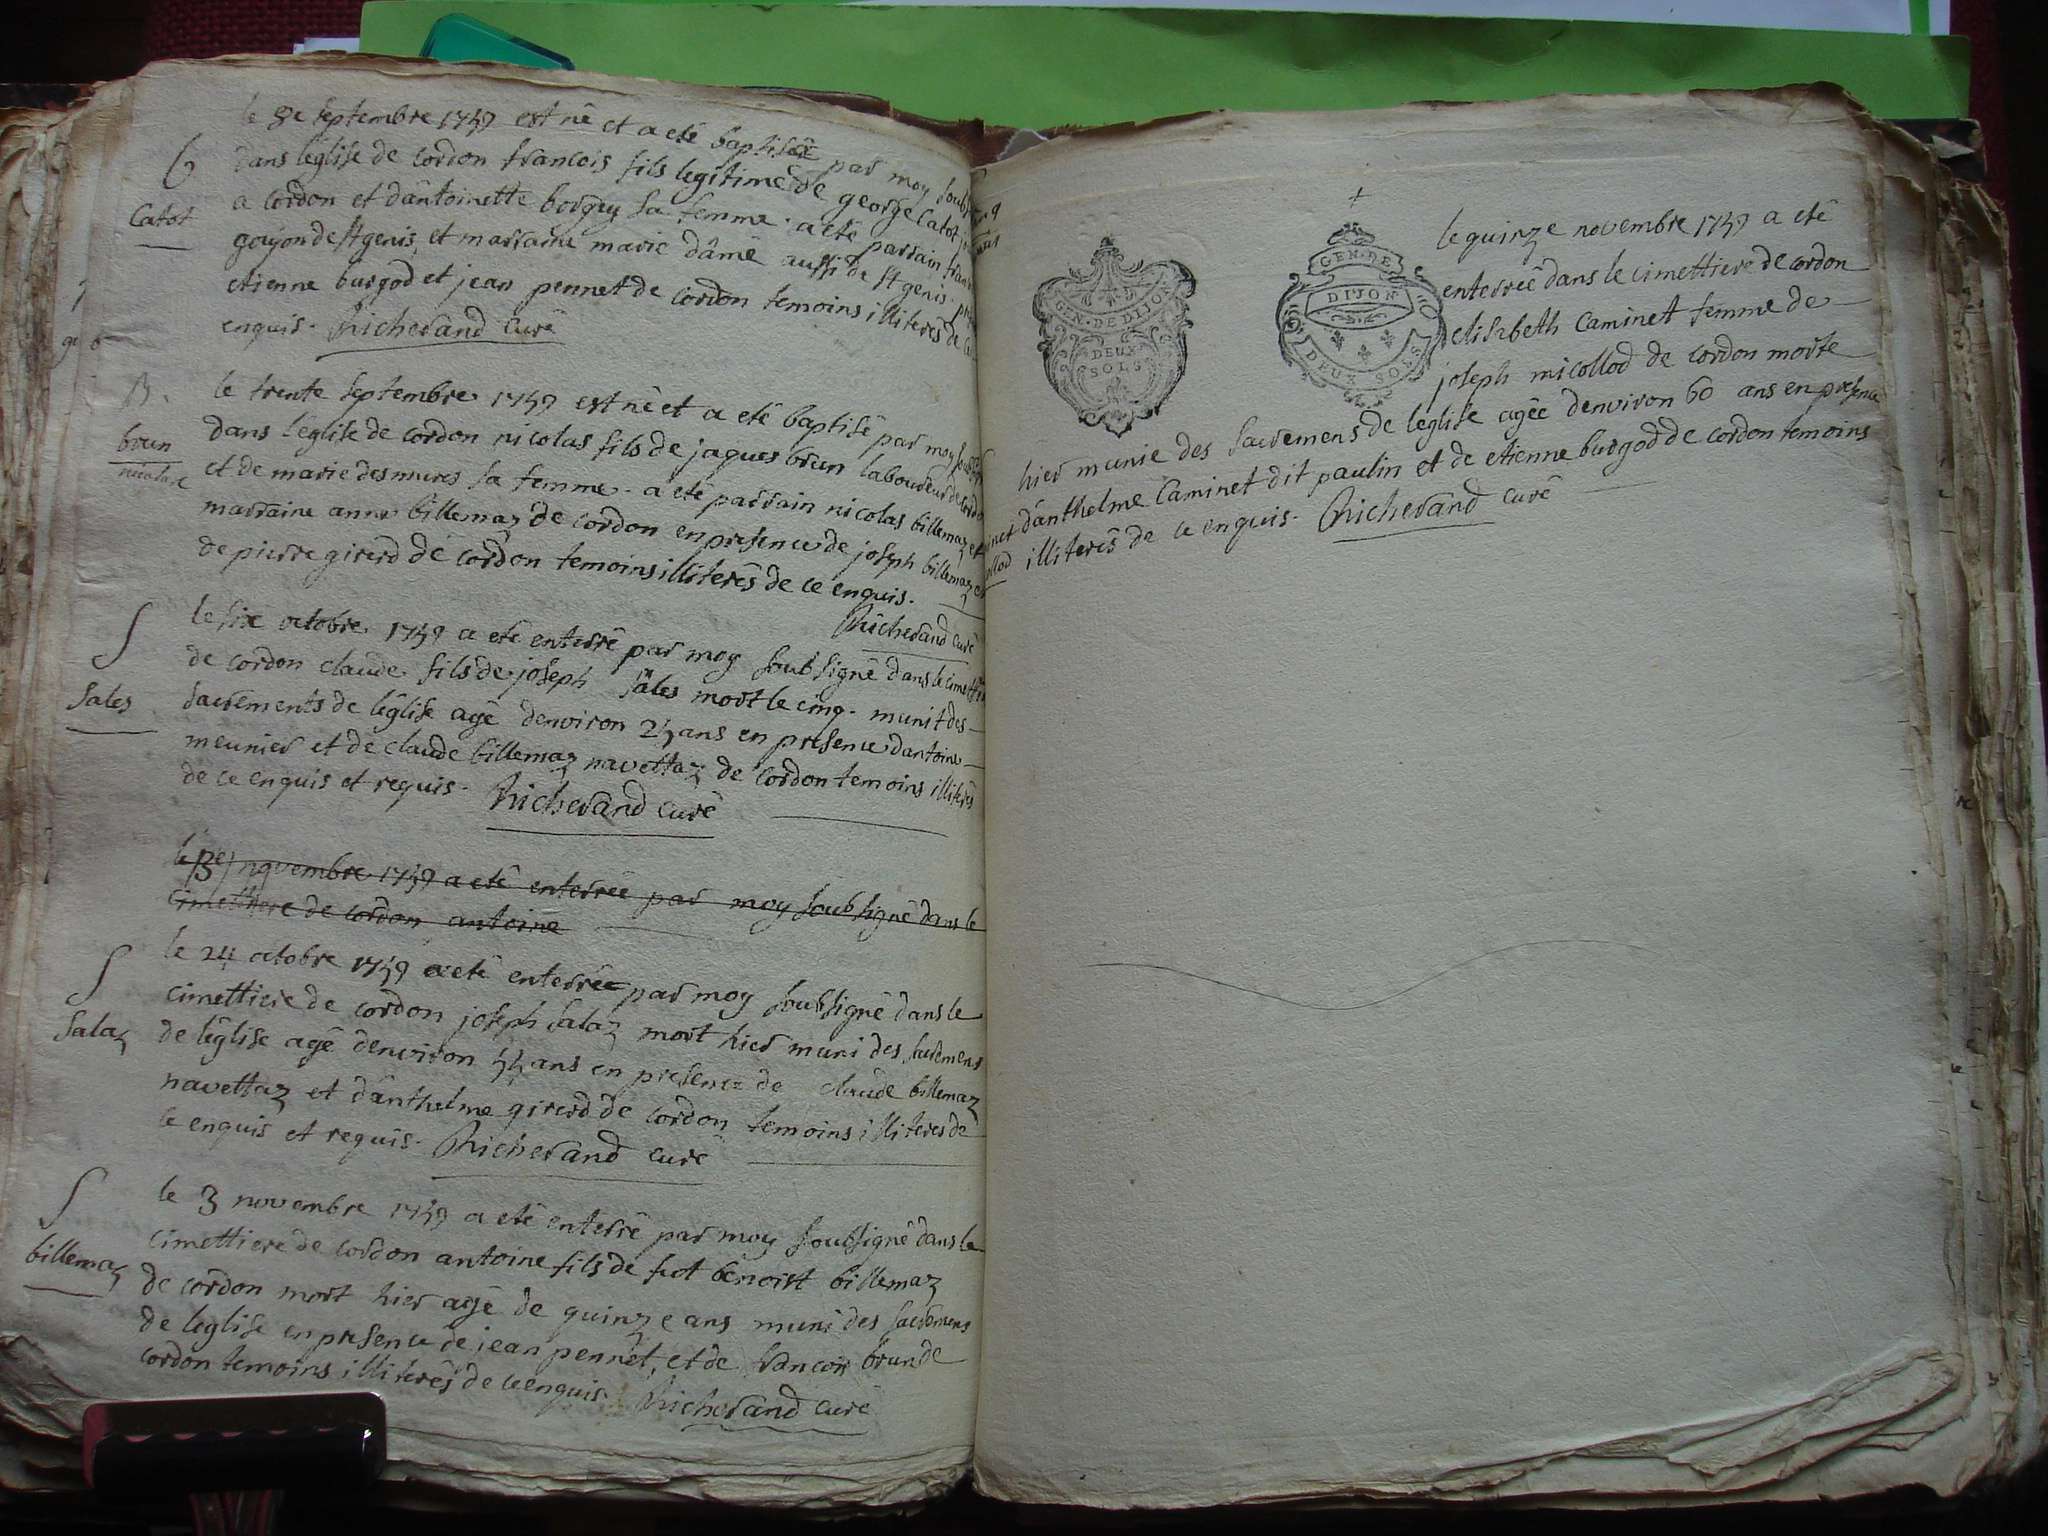 le 8e septembre 1759 est né et a eté baptisé par moy soubs
dans leglise de cordon francois fils legitime de george Catot
a cordon et dantoinette borgey sa femme. a eté parrain
goyon de st genis, et marraine marie dâmé aussi de st genis.
etienne burgod et jean pennet de cordon temoins illiterés de
enquis. Richerand curé
Catot
le trente septembre 1759 est né et a eté baptisé par moy
dans l'eglise de cordon nicolas fils de jaques brun laboureur de
et de marie desmures sa femme. a eté parrain nicolas billemaz et
marraine anne billemaz de cordon en presence de joseph billemaz
de pierre girerd de cordon temoins illiterés de ce enquis.
Richerand curé
B.
brun
le six octobre 1759 a eté enterré par moy soubsigné dans le
de cordon claude fils de joseph sâles mort le cinq. munit des
sacrements de léglise agé denviron 25 ans en presence dantoine
meunier et de claude billemaz navettaz de cordon temoins illiterés
de ce enquis et requis. Richerand curé
S
Sales
le novembre 1759 a eté enterrée par moy soubsigné dans le
cimettiere de cordon antoine
le 24 octobre 1759 a eté enterrée par moy soubsigné dans le
cimettiere de cordon joseph salaz mort hier muni des sacremens
de léglise agé denviron 55 ans en presence de claude billemaz
navettaz et dânthelme girerd de cordon temoins illiteres de
ce enquis et requis. Richerand curé
S
Salaz
le 3 novembre 1759 a eté enterré par moy soubsigné dans le
cimettiere de cordon antoine fils de fut benoist billemaz
de cordon mort hier agé de quinze ans muni des sacremens
de leglise en presence de jean pennet, et de francois brun de
cordon temoins illiterés de ce enquis. Richerand curé
S
billemaz
GEN. DE DIJON
DEUX
SOLS
GEN. DE
DIJON
DEUX SOLS
le quinze novembre 1759 a eté
enterrée dans le cimettiere de cordon
elisabeth Caminet femme de
joseph micollod de cordon morte
hier munie des sacremens de leglise agée denviron 60 ans en presence
dânthelme Caminet dit paulin et de etienne burgod de cordon temoins
illiterés de ce enquis. Richerand curé